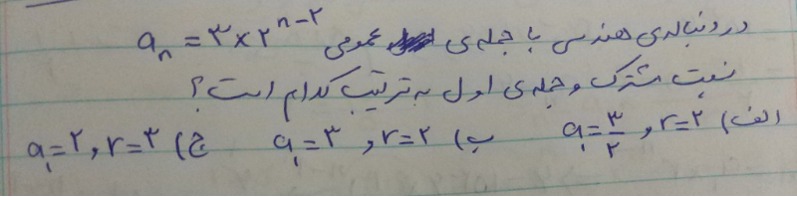 در دنباله‌ی هندسی با جمله‌ی عمومی aₙ = ۳ × ۲ⁿ⁻²
نسبت مشترک و جمله‌ی اول به ترتیب کدام است؟
الف) r=۲ و a₁=۳/۲ ب) r=۲ و a₁=۳ ج) r=۳ و a₁=۲